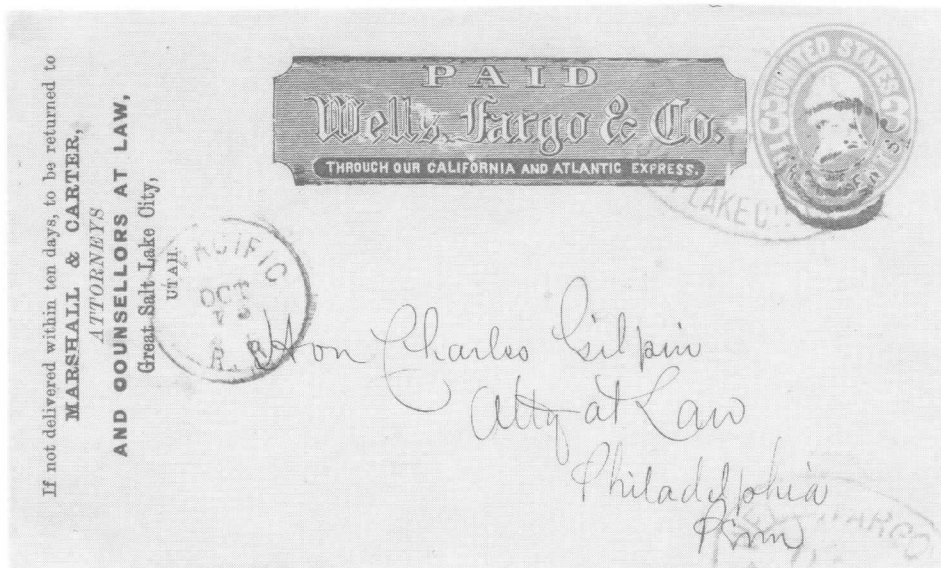 If not delivered within ten days, to be returned to
MARSHALL & CARTER,
ATTORNEYS
AND COUNSELLORS AT LAW,
Great Salt Lake City,
UTAH.
PAID
Wells, Fargo & Co.
THROUGH OUR CALIFORNIA AND ATLANTIC EXPRESS.
UNITED STATES
CENTS
LAKE CI
PACIFIC
OCT
R. R
Hon Charles Gilpin
Atty at Law
Philadelphia
Penn
FARGO